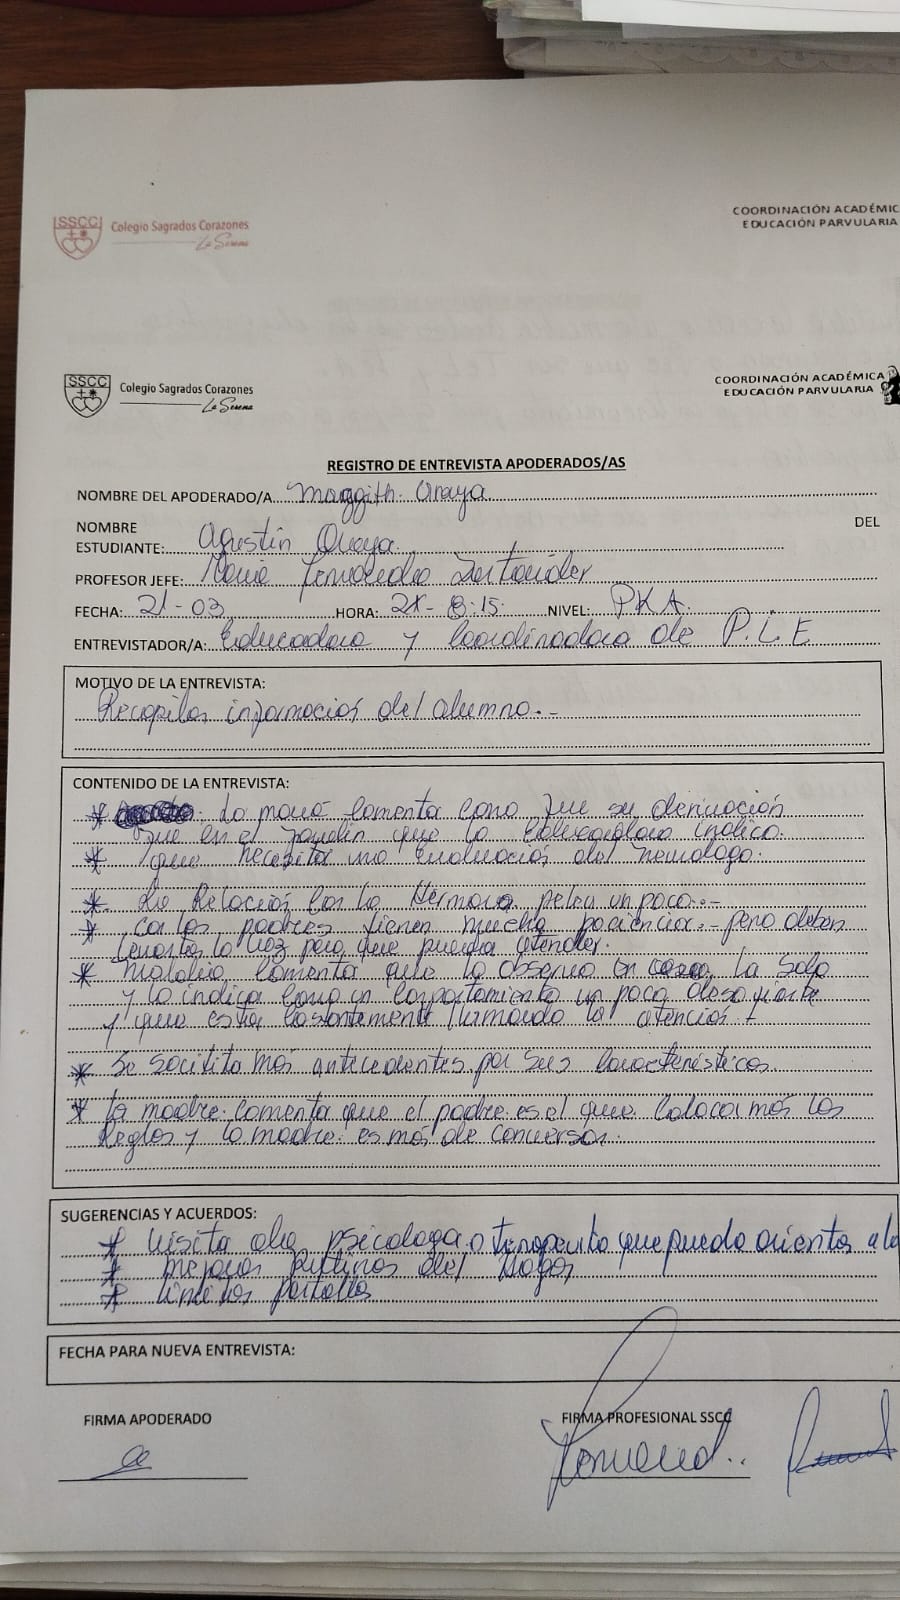 SSCC Colegio Sagrados Corazones
La Serena
COORDINACIÓN ACADÉMIC
EDUCACIÓN PARVULARIA
SSCC Colegio Sagrados Corazones
La Serena
COORDINACIÓN ACADÉMICA
EDUCACIÓN PARVULARIA
REGISTRO DE ENTREVISTA APODERADOS/AS
NOMBRE DEL APODERADO/A Maggith Araya
NOMBRE DEL
ESTUDIANTE: Agustín Araya
PROFESOR JEFE: Santander
FECHA: 21-03 HORA: 8:15 NIVEL: PKA.
ENTREVISTADOR/A: Educadora y Coordinadora de P.I.E
MOTIVO DE LA ENTREVISTA:
Recopilar información del alumno.-
CONTENIDO DE LA ENTREVISTA:
* La mamá comenta como fue su derivación
que en el jardín que la educadora indico
* que necesita una evaluación del neurologo.
* La Relación con la Hermana pelea un poco.-
* Con los padres tienen mucha paciencia.- pero deben
levantar la voz para que pueda atender.
* comenta que lo observa en la sala
y lo indica como un comportamiento un poco desafiante
y que esta constantemente llamando la atención
* Se socilita más antecedentes por sus características
* la madre comenta que el padre es el que colocar más las
Reglas y la madre es más de conversar.
SUGERENCIAS Y ACUERDOS:
* Visita de psicologa o terapeuta que pueda orientar a la
* mejorar Rutinas del Hogar
* pantallas
FECHA PARA NUEVA ENTREVISTA:
FIRMA APODERADO
FIRMA PROFESIONAL SSCC